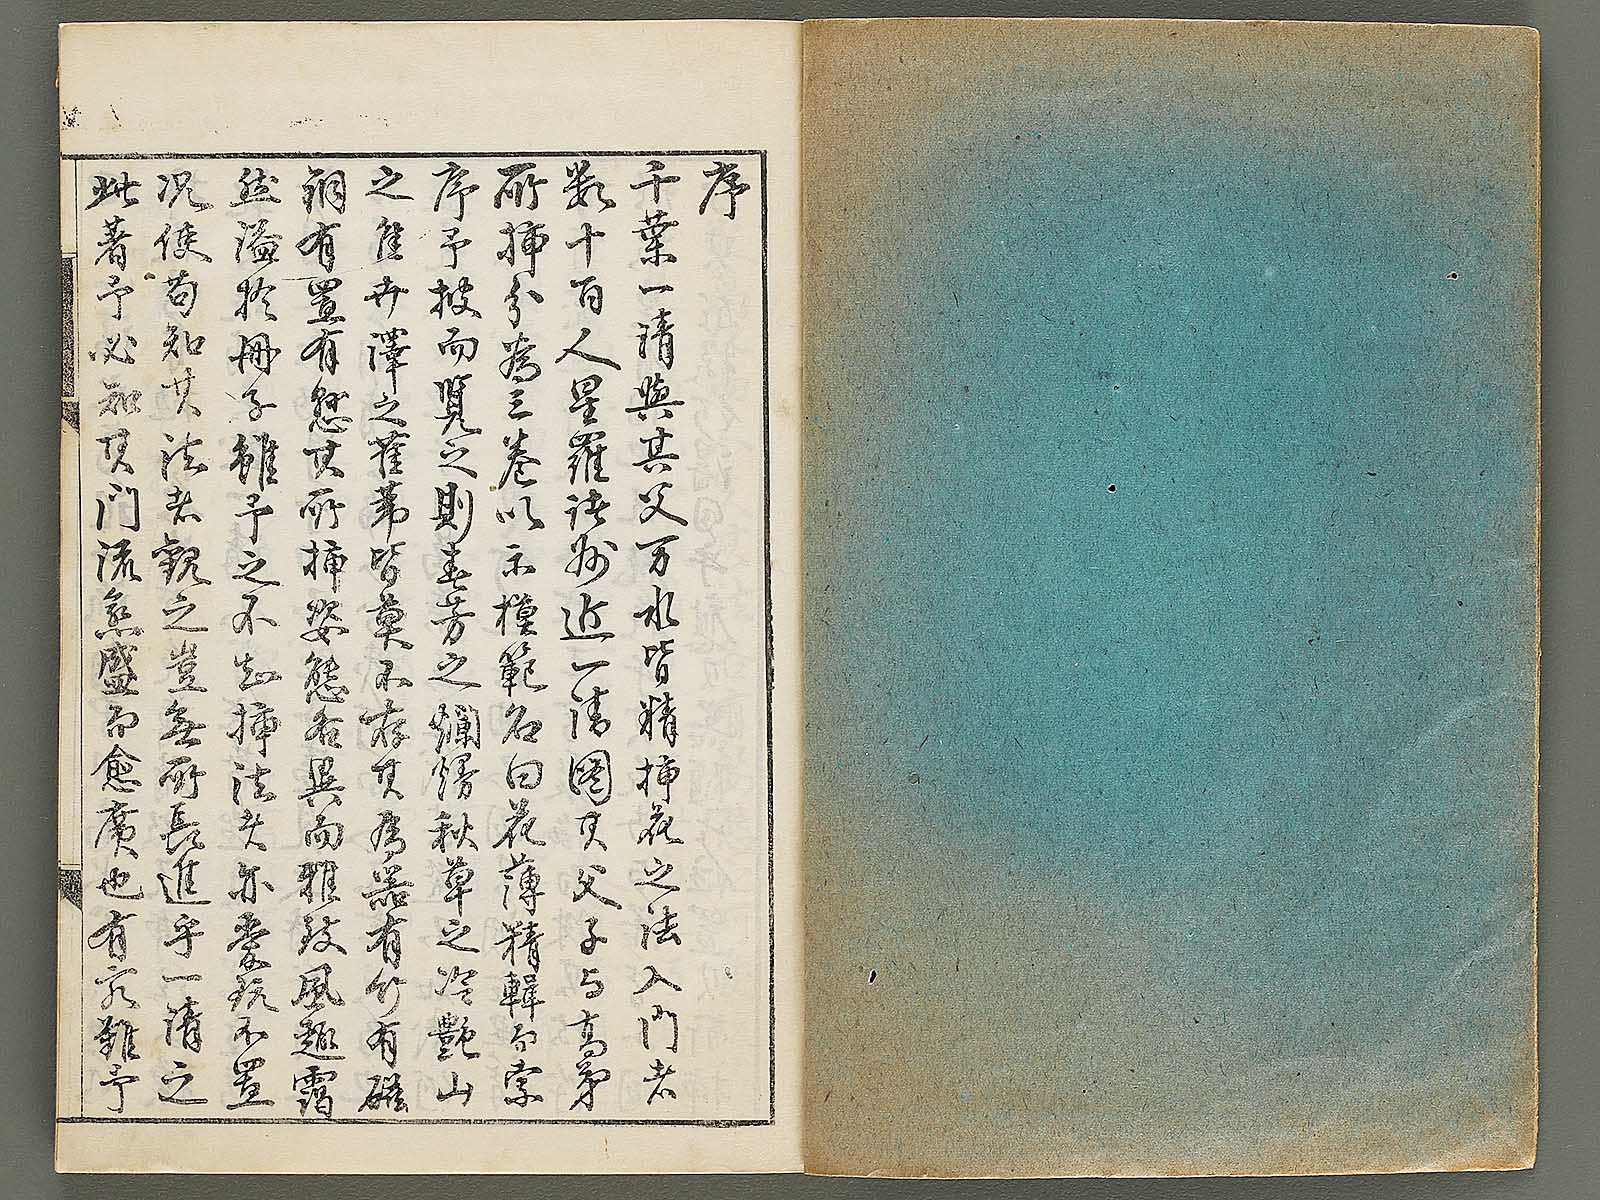 序
千葉一清與其父万水皆精挿花之法入門者
数十百人星羅諸州近一清図其父子与高弟
所挿分為三巻以示模範名曰花薄精輯而索
序予披而覧之則春芳之爛熳秋草之冷艶山
之隹卉澤之萑茀皆莫不存其為器有竹有磁
銅有置有懸其所挿姿態各異而雅致風趣靄
然溢於冊子雖予之不知挿法者亦愛玩不置
况使苟知其法者観之豈無所長進乎一清之
此著予必知其門流熊盛而愈廣也有客難予